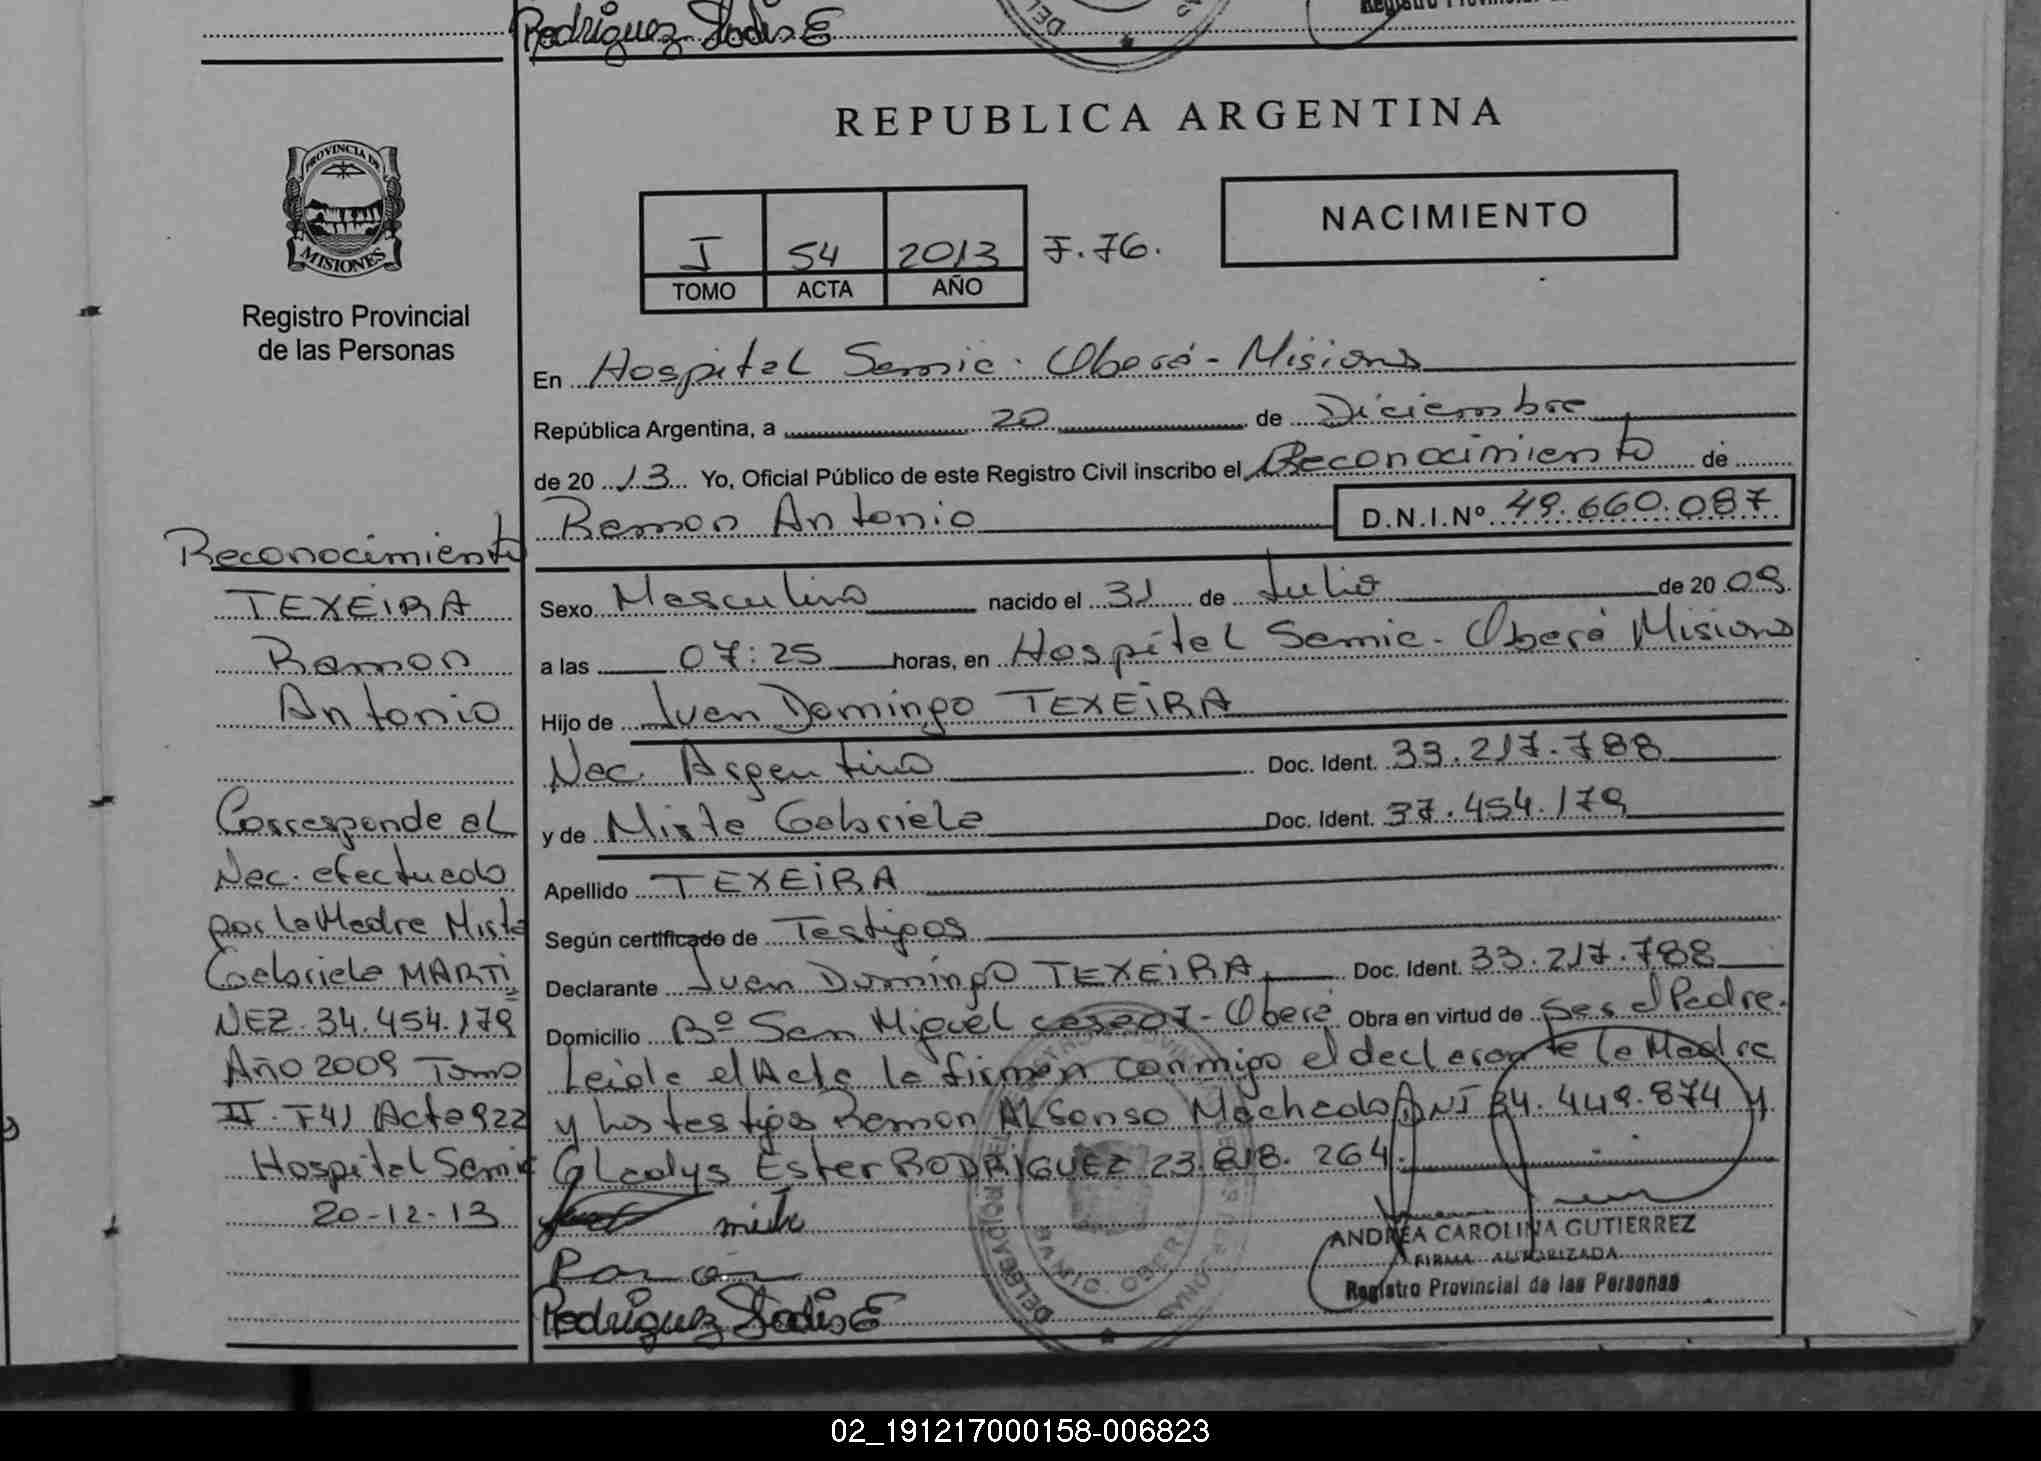 Rodriguez Gladis E
REPUBLICA ARGENTINA
PROVINCIA DE
MISIONES
Registro Provincial
de las Personas
I 54 2013 F. 76.
TOMO ACTA AÑO
NACIMIENTO
En Hospital Samic - Oberá - Misiones
República Argentina, a 20 de Diciembre
de 20 13 Yo, Oficial Público de este Registro Civil inscribo el Reconocimiento de
Ramon Antonio D.N.I.Nº 49.660.087
Sexo Masculino nacido el 31 de Julio de 20 09.
a las 07:25 horas, en Hospital Samic - Oberá Misiones
Hijo de Juan Domingo TEXEIRA
Nac. Argentino Doc. Ident. 33.217.788
y de Mirta Gabriela Doc. Ident. 37.454.179
Apellido TEXEIRA
Según certificado de Testigos
Declarante Juan Domingo TEXEIRA Doc. Ident. 33.217.788
Domicilio Bº San Miguel casa 07 - Oberá Obra en virtud de Ser el Padre.
Leida el Acta la firman conmigo el declarante la Madre
y los testigos Ramon Alfonso Machado DNI 34.449.874 y
Gladys Ester RODRIGUEZ 23.818.264.
Reconocimiento
TEXEIRA
Ramon
Antonio
Corresponde al
Nac. efectuado
por la Madre Mirta
Gabriela MARTI
NEZ 34.454.179
Año 2009 Tomo
II F 41 Acta 922
Hospital Samic
20-12-13
mirta
Rodriguez Gladis E
ANDREA CAROLINA GUTIERREZ
FIRMA AUTORIZADA
Registro Provincial de las Personas
02_191217000158-006823